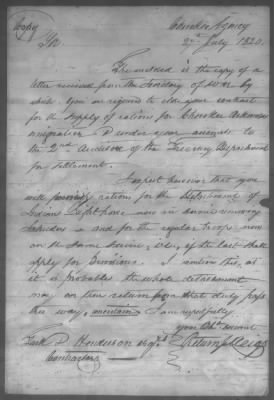 Copy
Cherokee Agency
2nd July 1820.
Sir
The enclosed is the copy of a
letter received from the Secretary of War by
which you are required to close your contract
for the supply of rations for Cherokee Arkansas
emigration & render your accounts to
the 2nd Auditor of the Treasury Department
for settlement.
I expect however that you
will furnish rations for the detachment of
now in
& for the regular troops now
on the same service, i.e., if they shall
apply for
I mention this, as
it is probable the whole detachment
may on their return from that duty pass
this way, I am respectfully
your Obt. servant
Henderson Esqr. Return J. Meigs
Contractor